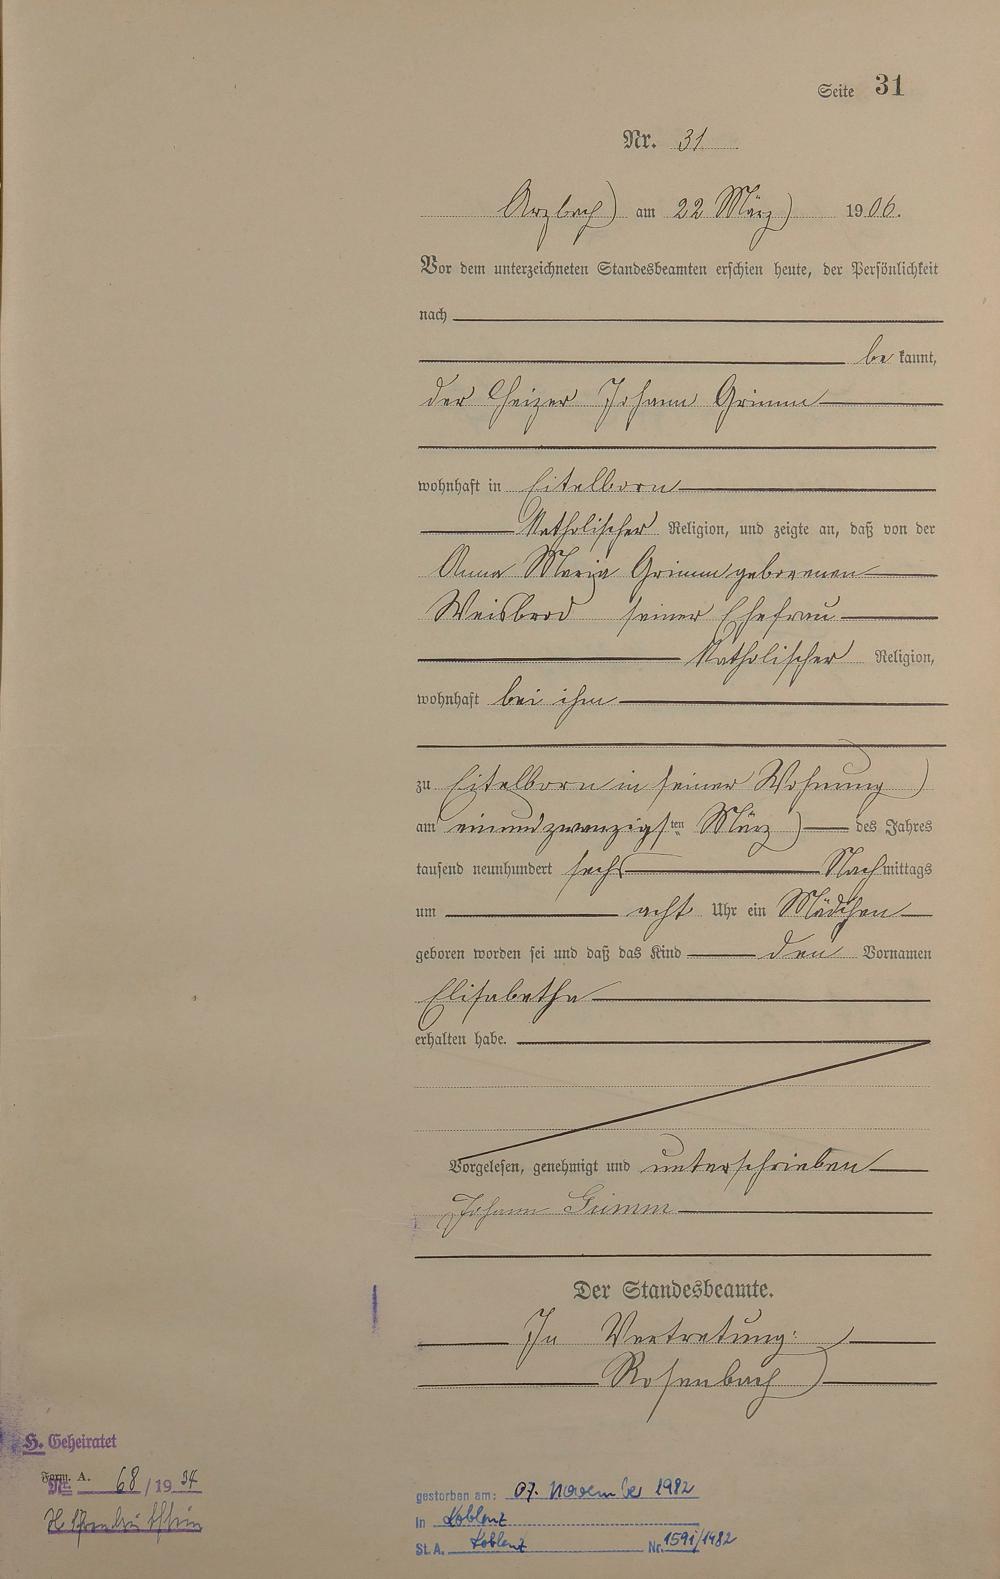 Seite 31
Nr. 31
Arzbach am 22 März 1906.
Vor dem unterzeichneten Standesbeamten erschien heute, der Persönlichkeit
nach
be kannt,
der Heizer Johann Grimm
wohnhaft in Eitelborn
Katholischer Religion, und zeigte an, daß von der
Anna Maria Grimm geborenen
Weisbrod seiner Ehefrau
Katholischer Religion,
wohnhaft bei ihm
zu Eitelborn in seiner Wohnung
am einundzwanzigsten März des Jahres
tausend neunhundert sechs Nachmittags
um acht Uhr ein Mädchen
geboren worden sei und daß das Kind den Vornamen
Elisabetha
erhalten habe.
Vorgelesen, genehmigt und unterschrieben
Johann Grimm
Der Standesbeamte.
In Vertretung:
Rosenbach
H. Geheiratet
Form. A.
Nr. 68/1934
gestorben am: 07. November 1982
In Koblenz
St.A. Koblenz Nr. 1591/1982